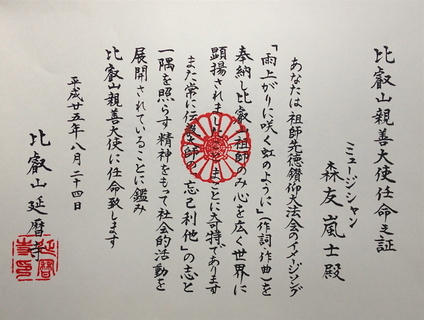 比叡山親善大使任命之証
ミュージシャン
森友嵐士殿
あなたは祖師先徳鑽仰大法会のイメージソング
「雨上がりに咲く虹のように」(作詞・作曲)を
奉納し比叡山祖師のみ心を広く世界に
顕揚されましたことまことに奇特であります
また常に伝教大師の「忘己利他」の志と
一隅を照らす精神をもって社会的活動を
展開されていることに鑑み
比叡山親善大使に任命致します
平成廿五年八月二十四日
比叡山延暦寺